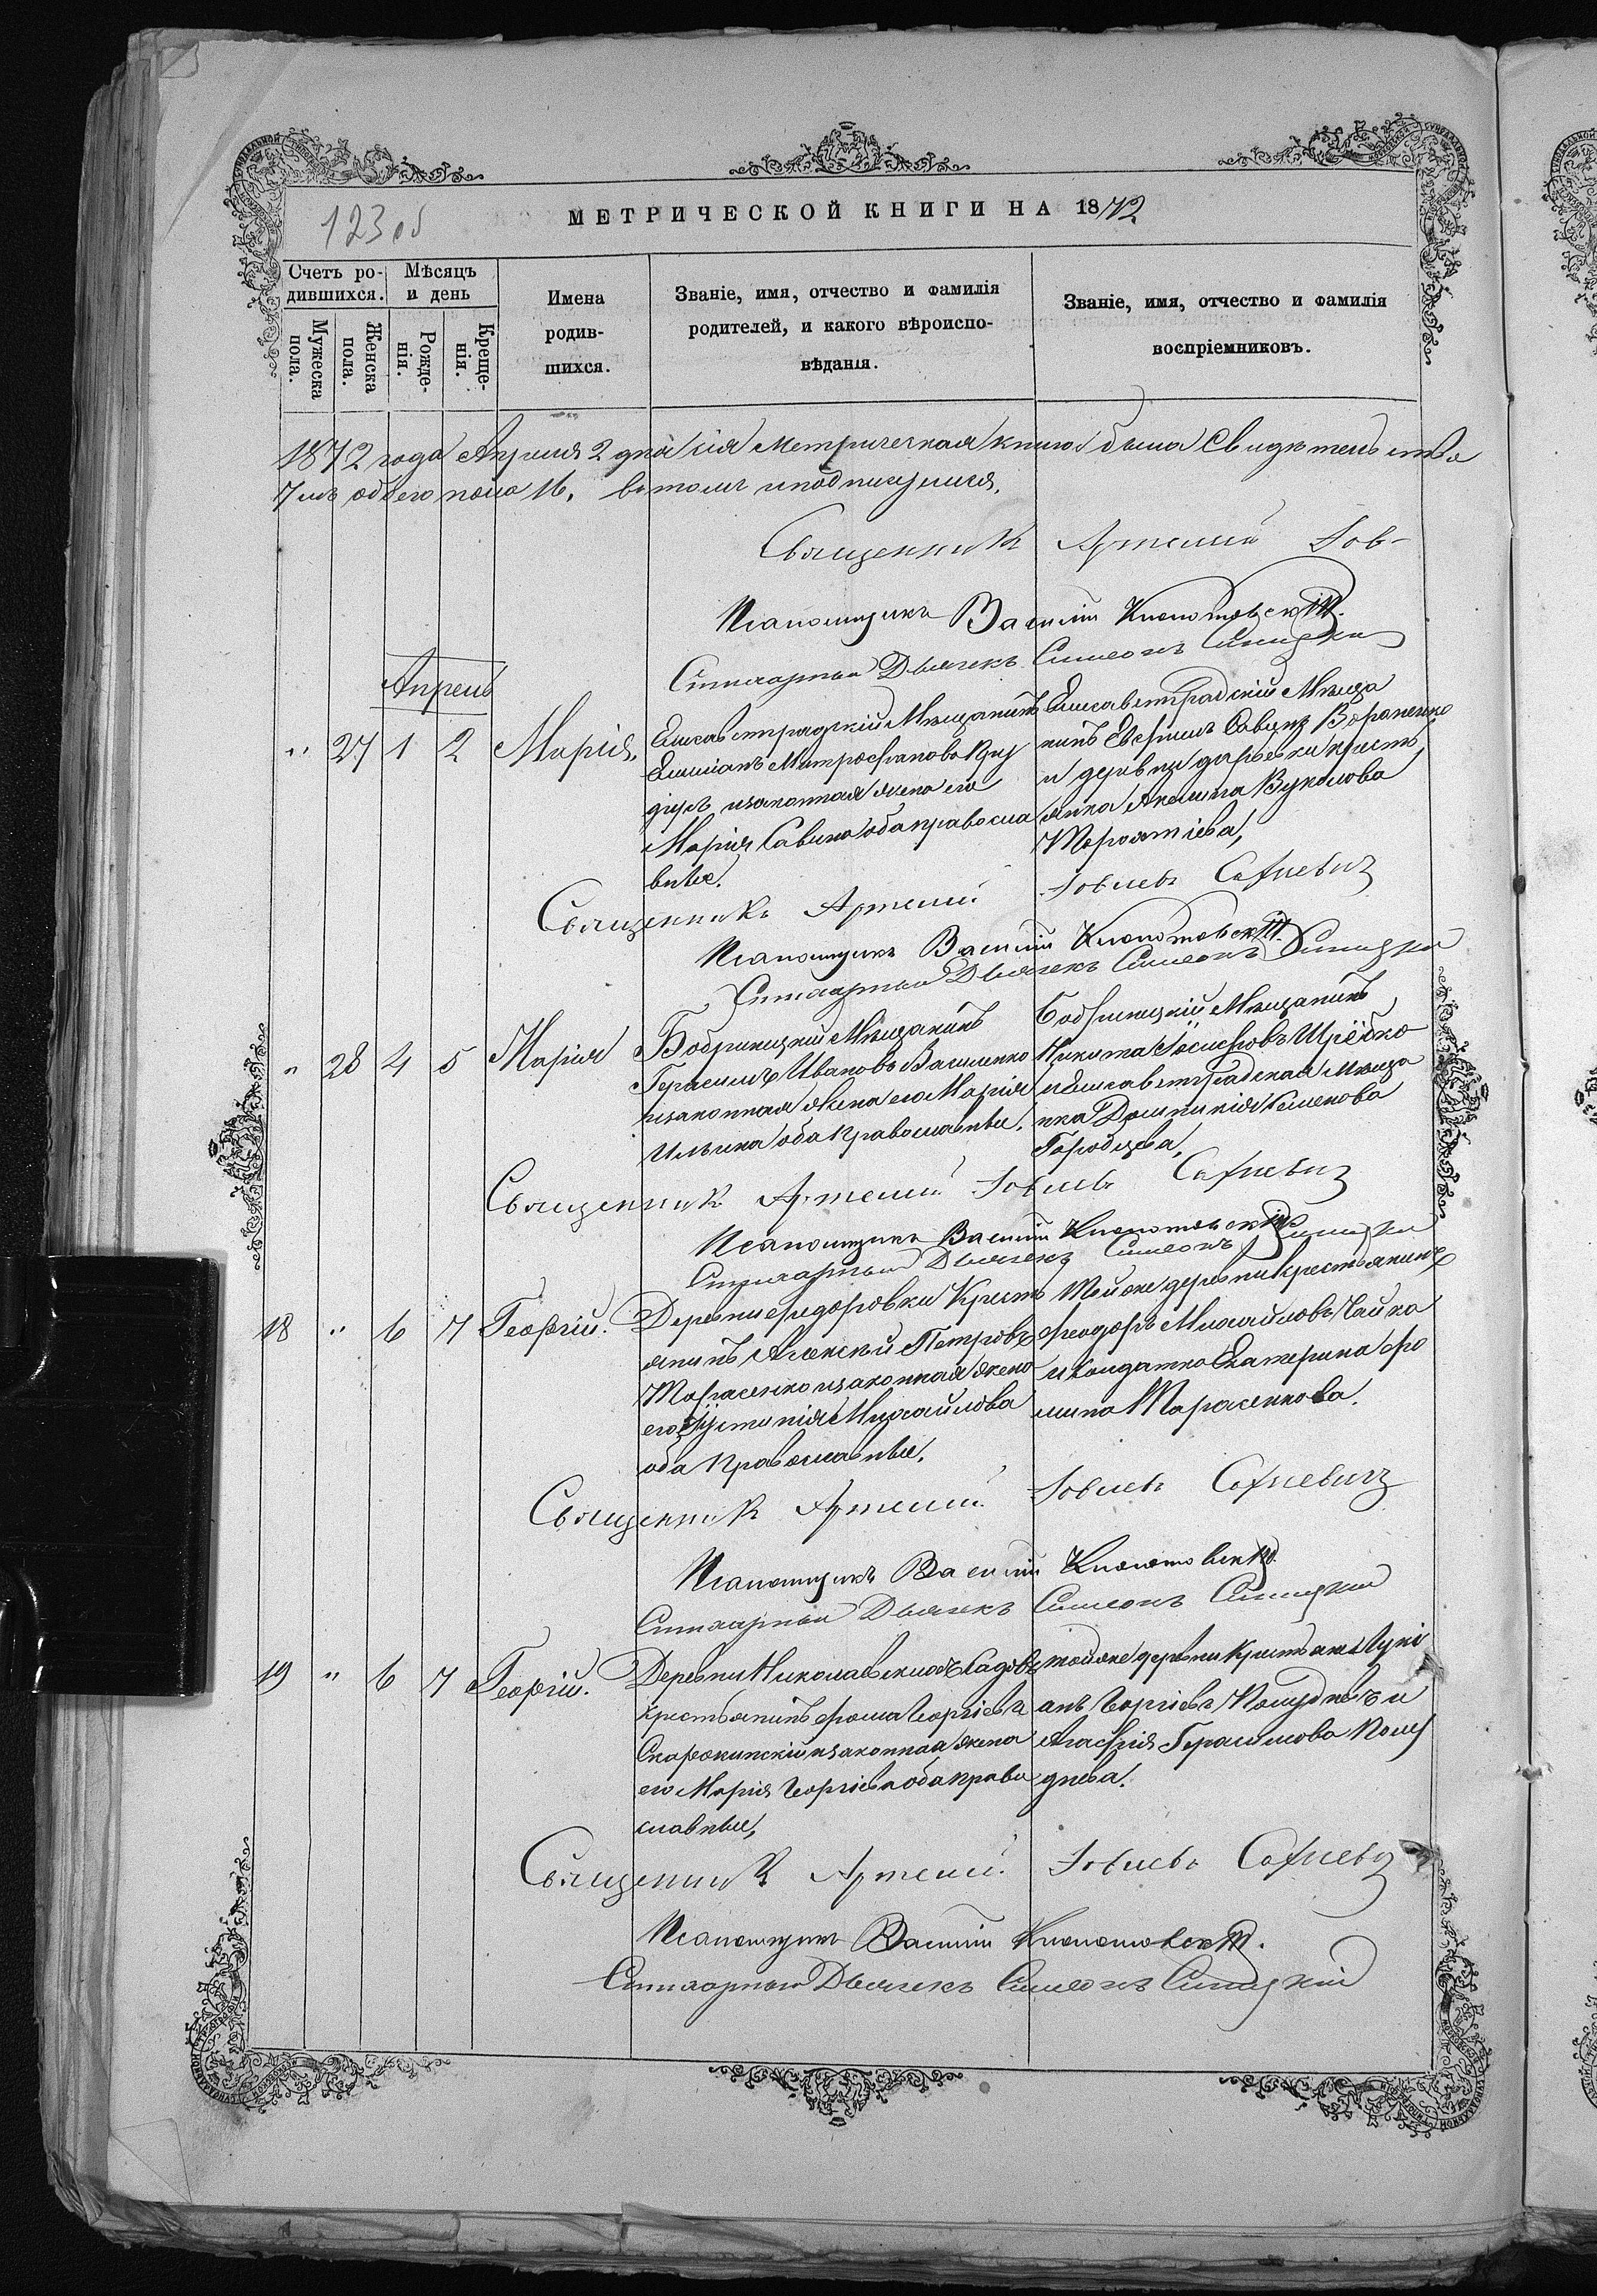 123 об
МЕТРИЧЕСКОЙ КНИГИ НА 1872
Счетъ ро-
дившихся.
Мужеска пола.
Женска пола.
Мѣсяцъ
и день
Рожде-
нія.
Креще-
нія.
Имена
родив-
шихся.
Званіе, имя, отчество и фамилія
родителей, и какого вѣроиспо-
вѣданія.
Званіе, имя, отчество и фамилія
воспріемниковъ.
1872 года Апреля 2 дня сія метрическая книга была
обоего пола 16. въ томъ и подписуемся.
Священникъ Артемій Іов-
Псаломщикъ Василій Клопотовскій.
Стихарный Дьячекъ Симеонъ Синицкій
Апрель
" 27 1 2 Марія.
Елисаветградскій Мѣщанинъ
Емиліанъ Митрофановъ
и законная жена его
Марія Савина оба православ
ные.
Елисаветградскій Мѣща
нинъ Савинъ Вороненко
и деревни крестъ
янка Акилина Вуколова
Священникъ Артемій Іовлевъ
Псаломщикъ Василій Клопотовскій.
Стихарный Дьячекъ Симеонъ Синицкій
" 28 4 5 Марія
Бобринецкій Мѣщанинъ
Герасимъ Ивановъ Василенко
и законная жена его Марія
Ильина оба Православные.
Бобринецкій Мѣщанинъ
Никита
и Елисаветградская Мѣща
нка Домникія Семенова
Городцева,
Священникъ Артемій Іовлевъ
Псаломщикъ Василій Клопотовскій
Стихарный Дьячекъ Симеонъ Синицкій
18 " 6 7 Георгій.
Деревни Федоровки Кресть
янинъ Алексѣй Петровъ
Тарасенко и законная жена
его Іустинія Михайлова
оба Православные.
Той же деревни Крестьянинъ
Феодоръ Михайловъ Чайка
и солдатка Екатерина Фо
мина Тарасенкова.
Священникъ Артемій Іовлевъ
Псаломщикъ Василій Клопотовскій.
Стихарный Дьячекъ Симеонъ Синицкій
19 " 6 7 Георгій.
Деревни Николаевскихъ Садовъ
крестьянинъ Фома Георгіевъ
и законная жена
его Марія Георгіева оба право
славные,
той же деревни Крестьян Лукі
анъ Георгіевъ Полудневъ и
Агафія Герасимова Полу
днева.
Священникъ Артемій Іовлевъ
Псаломщикъ Василій Клопотовскій.
Стихарный Дьячекъ Симеонъ Синицкій